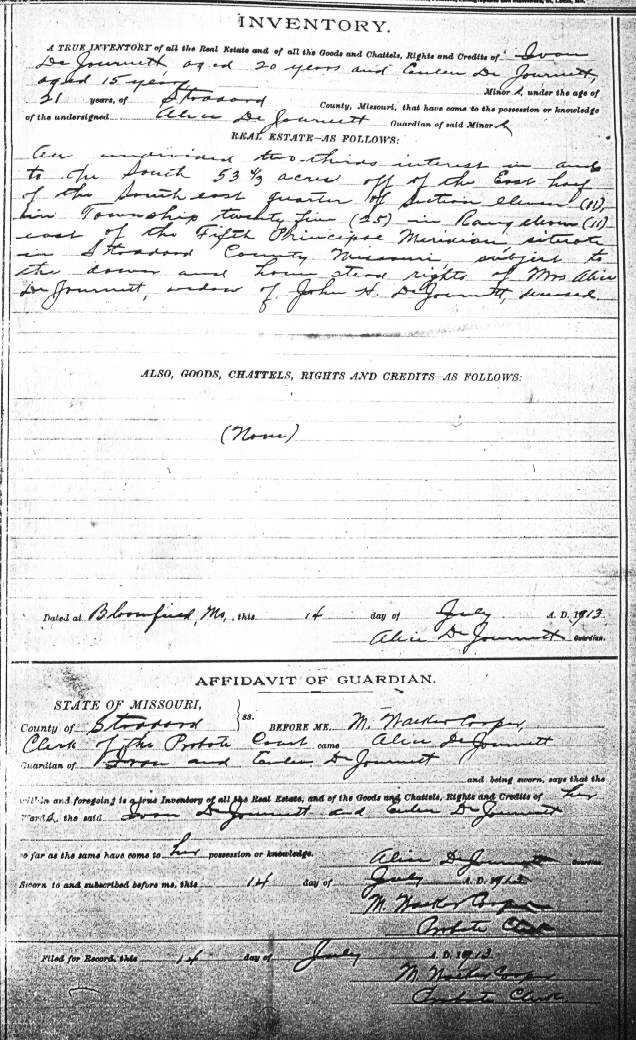 INVENTORY.
A TRUE INVENTORY of all the Real Estate and of all the Goods and Chattels, Rights and Credits of Ivon
De Journett aged 20 years and Eulen De Journett,
aged 15 years Minor s, under the age of
21 years, of Stoddard County, Missouri, that have come to the possession or knowledge
of the undersigned Alice De Journett Guardian of said Minor s
REAL ESTATE—AS FOLLOWS:
An undivided two thirds interest in and
to the South 53 1/3 acres off of the East half
of the South east quarter of Section eleven (11)
in Township twenty five (25) in Range eleven (11)
east of the Fifth Principal Meridian, situate
in Stoddard County Missouri, subject to
the dower and home stead rights of Mrs Alice
De Journett, widow of John H. De Journett, deceased
ALSO, GOODS, CHATTELS, RIGHTS AND CREDITS—AS FOLLOWS:
(None)
Dated at Bloomfield, Mo, this 14 day of July A. D. 1913
Alice De Journett Guardian.
AFFIDAVIT OF GUARDIAN.
STATE OF MISSOURI,
County of Stoddard ss. BEFORE ME, M. Walker Cooper,
Clerk of the Probate Court came Alice De Journett
Guardian of Ivon and Eulen De Journett
and being sworn, says that the
within and foregoing is a true Inventory of all the Real Estate, and of the Goods and Chattels, Rights and Credits of her
Ward s, the said Ivon De Journett and Eulen De Journett
so far as the same have come to her possession or knowledge.
Alice De Journett Guardian
Sworn to and subscribed before me, this 14 day of July A. D. 1913
M. Walker Cooper
Probate Clerk
Filed for Record, this 14 day of July A. D. 1913
M. Walker Cooper
Probate Clerk.